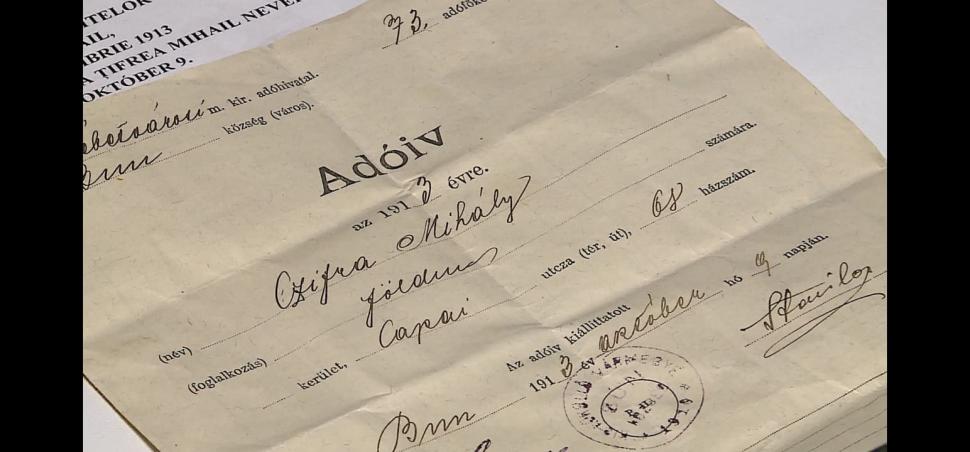 AIL,
MBRIE 1913
A TIFREA MIHAIL
OKTÓBER 9.
73. adófők
m. kir. adóhivatal.
Bun község (város).
Adóív
az 1913 évre.
(név) Czifra Mihály
(foglalkozás) számára.
kerület, Capai utcza (tér, út), 68 házszám.
Az adóív kiállíttatott
Bun 1913 év október hó 9 napján.